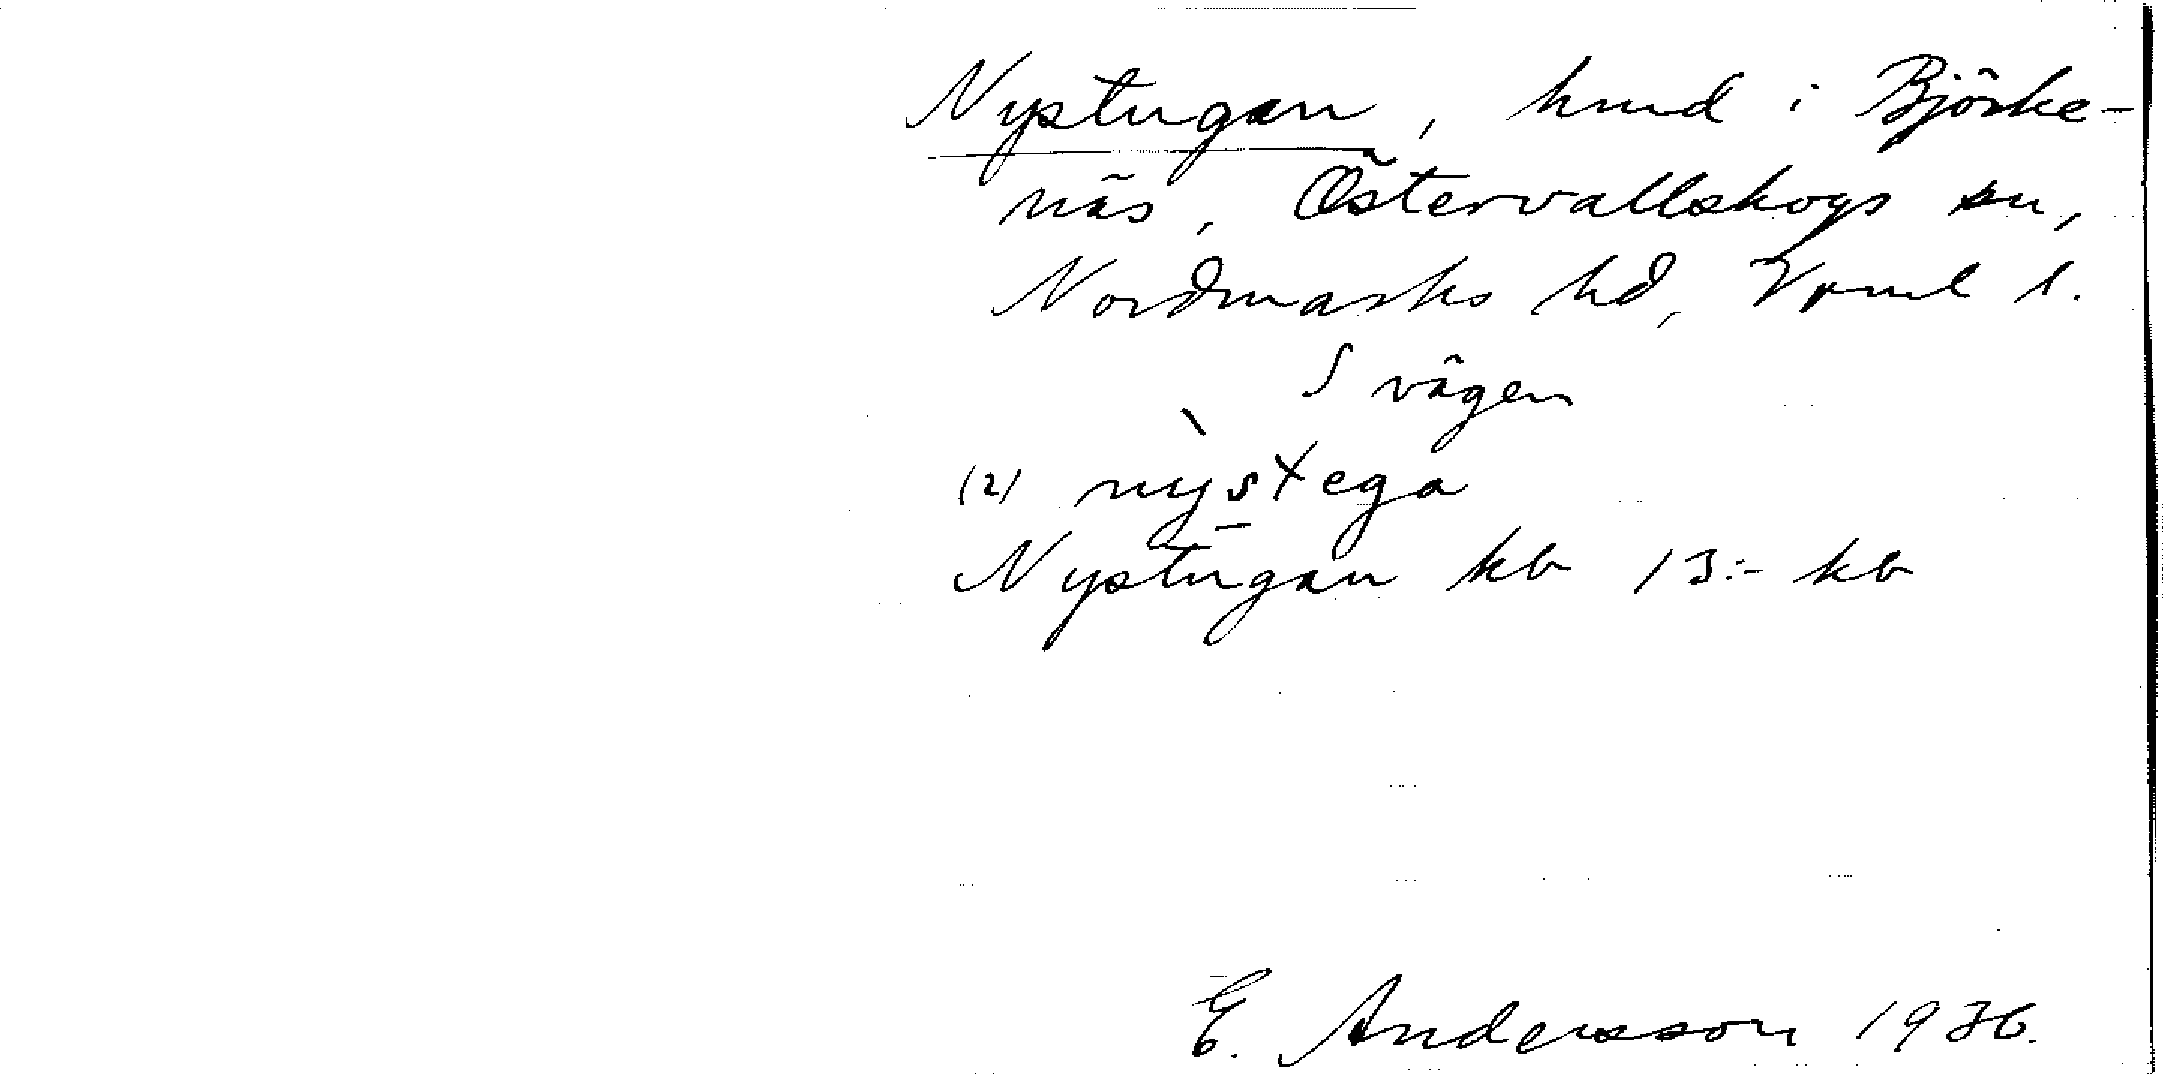 Nystugan, hmd i Björke-
näs, Östervallskogs sn,
Nordmarks hd, Vrml l.
S vägen
(2) nỳstega
Nystugan kb 13:- kb
E. Andersson 1936.